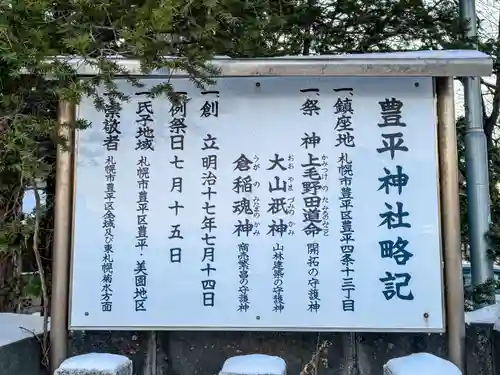 豊平神社略記
一、鎮座地 札幌市豊平区豊平四条十三丁目
一、祭神 上毛野田道命 開拓の守護神
かみつけの たみちの みこと
大山祇神 山林建築の守護神
おお やま づみの かみ
倉稲魂神 商売繁昌の守護神
うが の みたまの かみ
一、創立 明治十七年七月十四日
一、例祭日 七月十五日
一、氏子地域 札幌市豊平区豊平・美園地区
一、崇敬者 札幌市豊平区全域及び東札幌菊水方面